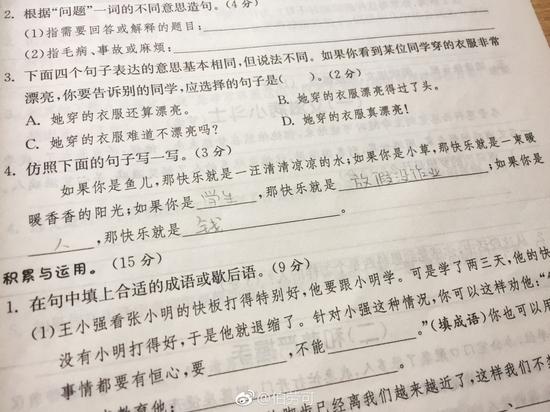 2. 根据“问题”一词的不同意思造句。(4分)
(1)指需要回答或解释的题目:
(2)指毛病、事故或麻烦:
3. 下面四个句子表达的意思基本相同,但说法不同。如果你看到某位同学穿的衣服非常
漂亮,你要告诉别的同学,应选择的句子是( )。(2分)
A. 她穿的衣服还算漂亮。 B. 她穿的衣服漂亮得过了头。
C. 她穿的衣服难道不漂亮吗? D. 她穿的衣服真漂亮!
4. 仿照下面的句子写一写。(3分)
如果你是鱼儿,那快乐就是一汪清清凉凉的水;如果你是小草,那快乐就是一束暖
暖香香的阳光;如果你是学生,那快乐就是放假没作业;如果你是
人,那快乐就是钱。
积累与运用。(15分)
1. 在句中填上合适的成语或歇后语。(9分)
(1)王小强看张小明的快板打得特别好,他要跟小明学。可是学了两三天,他的快
没有小明打得好,于是他就退缩了。针对小强这种情况,你可以这样劝他:“
事情都要有恒心,要 ,不能 。”(填成语)你也可以用
教育他:
脚步已经离我们越来越近了,这样我们不